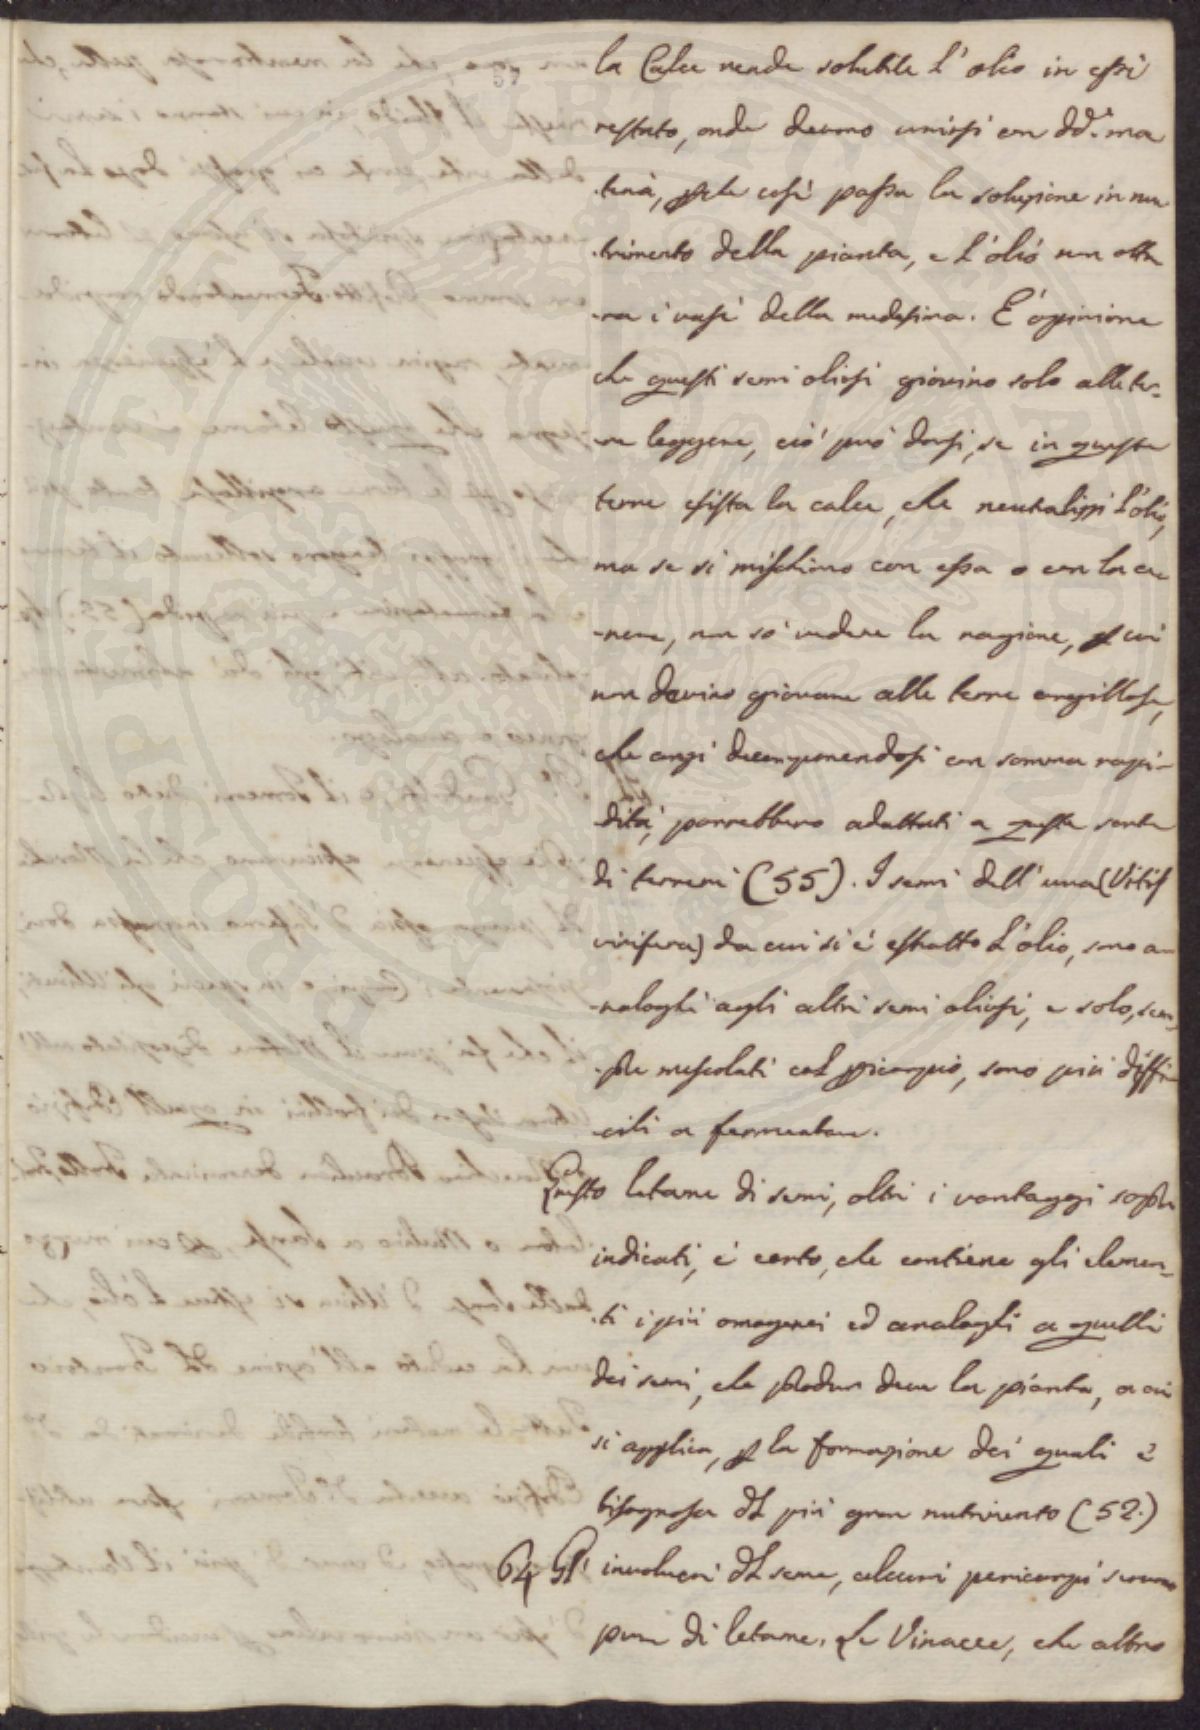 la Calce rende solubile l'olio in essi
restato, onde devono unirsi con dd.ᵃ ma
-teria, che così passa la soluzione in nu
-trimento della pianta, e l'olio non ottu
-ra i vasi della medesima. È opinione
che questi semi oliosi giovino solo alle ter-
-re leggere, ciò può darsi, se in queste
terre esista la calce, che neutralizzi l'olio,
ma se si mischiano con essa o con la ce
-nere, non sò vedere la ragione, p cui
non devino giovare alle terre argillose,
che anzi decomponendosi con somma rapi-
-dità, parrebbero adattati a queste sorte
di terreni (55). I semi dell'uva (Vitis
vinifera) da cui si è estratto l'olio, sono a
-naloghi agli altri semi oliosi, e solo, sem
-pre mescolati col picarpio, sono più diffi
-cili a fermentare.
Questo letame di semi, oltri i vantaggi sopra
indicati, è certo, che contiene gli elemen-
-ti i più omogenei ed analoghi a quelli
dei semi, che produr deve la pianta, a cui
si applica, p la formazione dei quali è
bisognosa del più gran nutrimento (52.)
64 Gl'involucri del seme, alcuni pericarpi servono
pure di letame. Le Vinacce, che altro